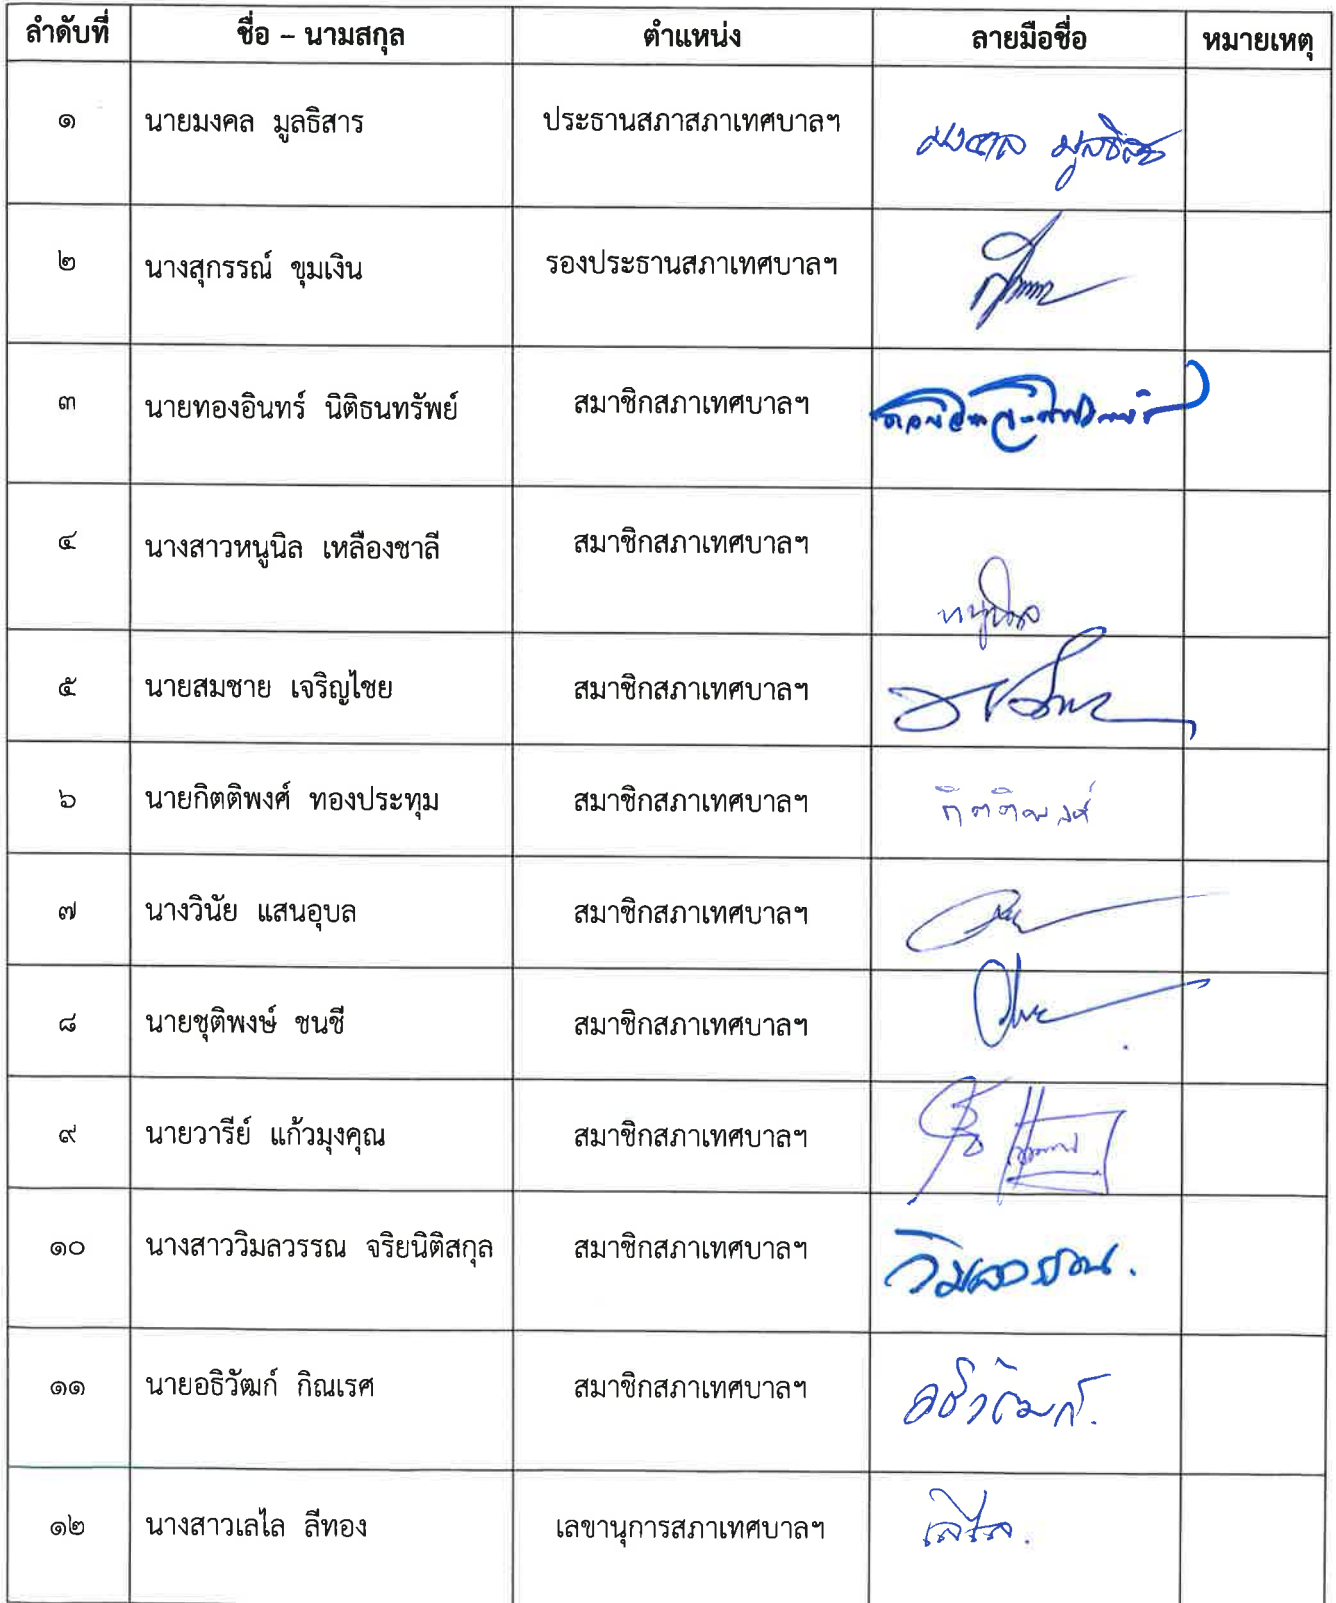 ลำดับที่ ชื่อ – นามสกุล ตำแหน่ง ลายมือชื่อ หมายเหตุ
๑ นายมงคล มูลธิสาร ประธานสภาสภาเทศบาลฯ มงคล มูลธิสาร
๒ นางสุกรรณ์ ขุมเงิน รองประธานสภาเทศบาลฯ
๓ นายทองอินทร์ นิติธนทรัพย์ สมาชิกสภาเทศบาลฯ
๔ นางสาวหนูนิล เหลืองชาลี สมาชิกสภาเทศบาลฯ หนูนิล
๕ นายสมชาย เจริญไชย สมาชิกสภาเทศบาลฯ
๖ นายกิตติพงศ์ ทองประทุม สมาชิกสภาเทศบาลฯ กิตติพงศ์
๗ นางวินัย แสนอุบล สมาชิกสภาเทศบาลฯ
๘ นายชุติพงษ์ ชนชี สมาชิกสภาเทศบาลฯ
๙ นายวารีย์ แก้วมุงคุณ สมาชิกสภาเทศบาลฯ
๑๐ นางสาววิมลวรรณ จริยนิติสกุล สมาชิกสภาเทศบาลฯ วิมลวรรณ.
๑๑ นายอธิวัฒก์ กิณเรศ สมาชิกสภาเทศบาลฯ อธิวัฒก์.
๑๒ นางสาวเลไล ลีทอง เลขานุการสภาเทศบาลฯ เลไล.